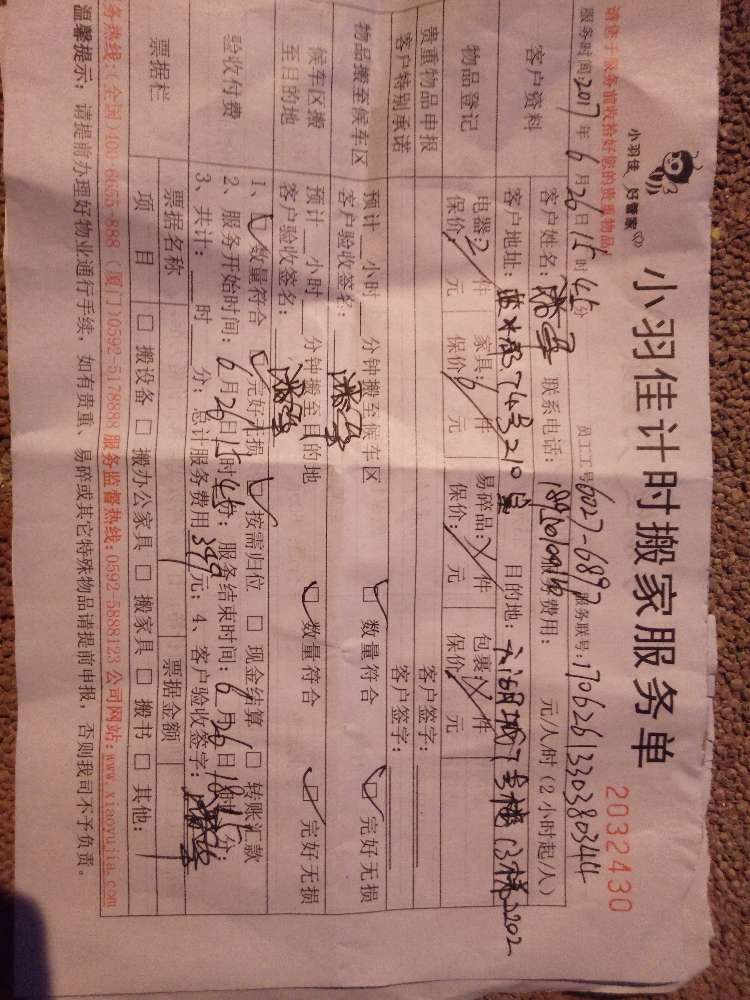 小羽佳 好管家
小羽佳计时搬家服务单
2032430
请您于服务前收拾好您的贵重物品!
服务时间:2017年6月26日15时45分 员工工号:6027-6897 服务联号:170626133038034
客户资料
客户姓名: 联系电话: 服务费用: 元/人时(2小时起/人)
客户地址: 743号210室 目的地:
物品登记
电器:2件 家具:6件 易碎品: 件 包裹: 件
保价: 元 保价: 元 保价: 元 保价: 元
贵重物品申报 客户签字:
客户特别承诺 客户签字:
物品搬至候车区
预计 小时 分钟搬至候车区 数量符合 完好无损
客户验收签名:
候车区搬至目的地
预计 小时 分钟搬至目的地 数量符合 完好无损
客户验收签名:
验收付费
1、 数量符合 完好无损 按需归位 现金结算 转账汇款
2、服务开始时间:6月26日15时45分; 服务结束时间:6月26日18时 分;
3、共计: 时 分; 总计服务费用 399元; 4、客户验收签字:
票据栏
票据名称 票据金额
项目 搬设备 搬办公家具 搬家具 搬书 其他:
务热线:(全国)400-6055-888 (厦门)0592-5178888 服务监督热线:0592-5888123 公司网站:www.xiaoyujia.com
温馨提示:请提前办理好物业通行手续,如有贵重、易碎或其它特殊物品请提前申报,否则我司不予负责。